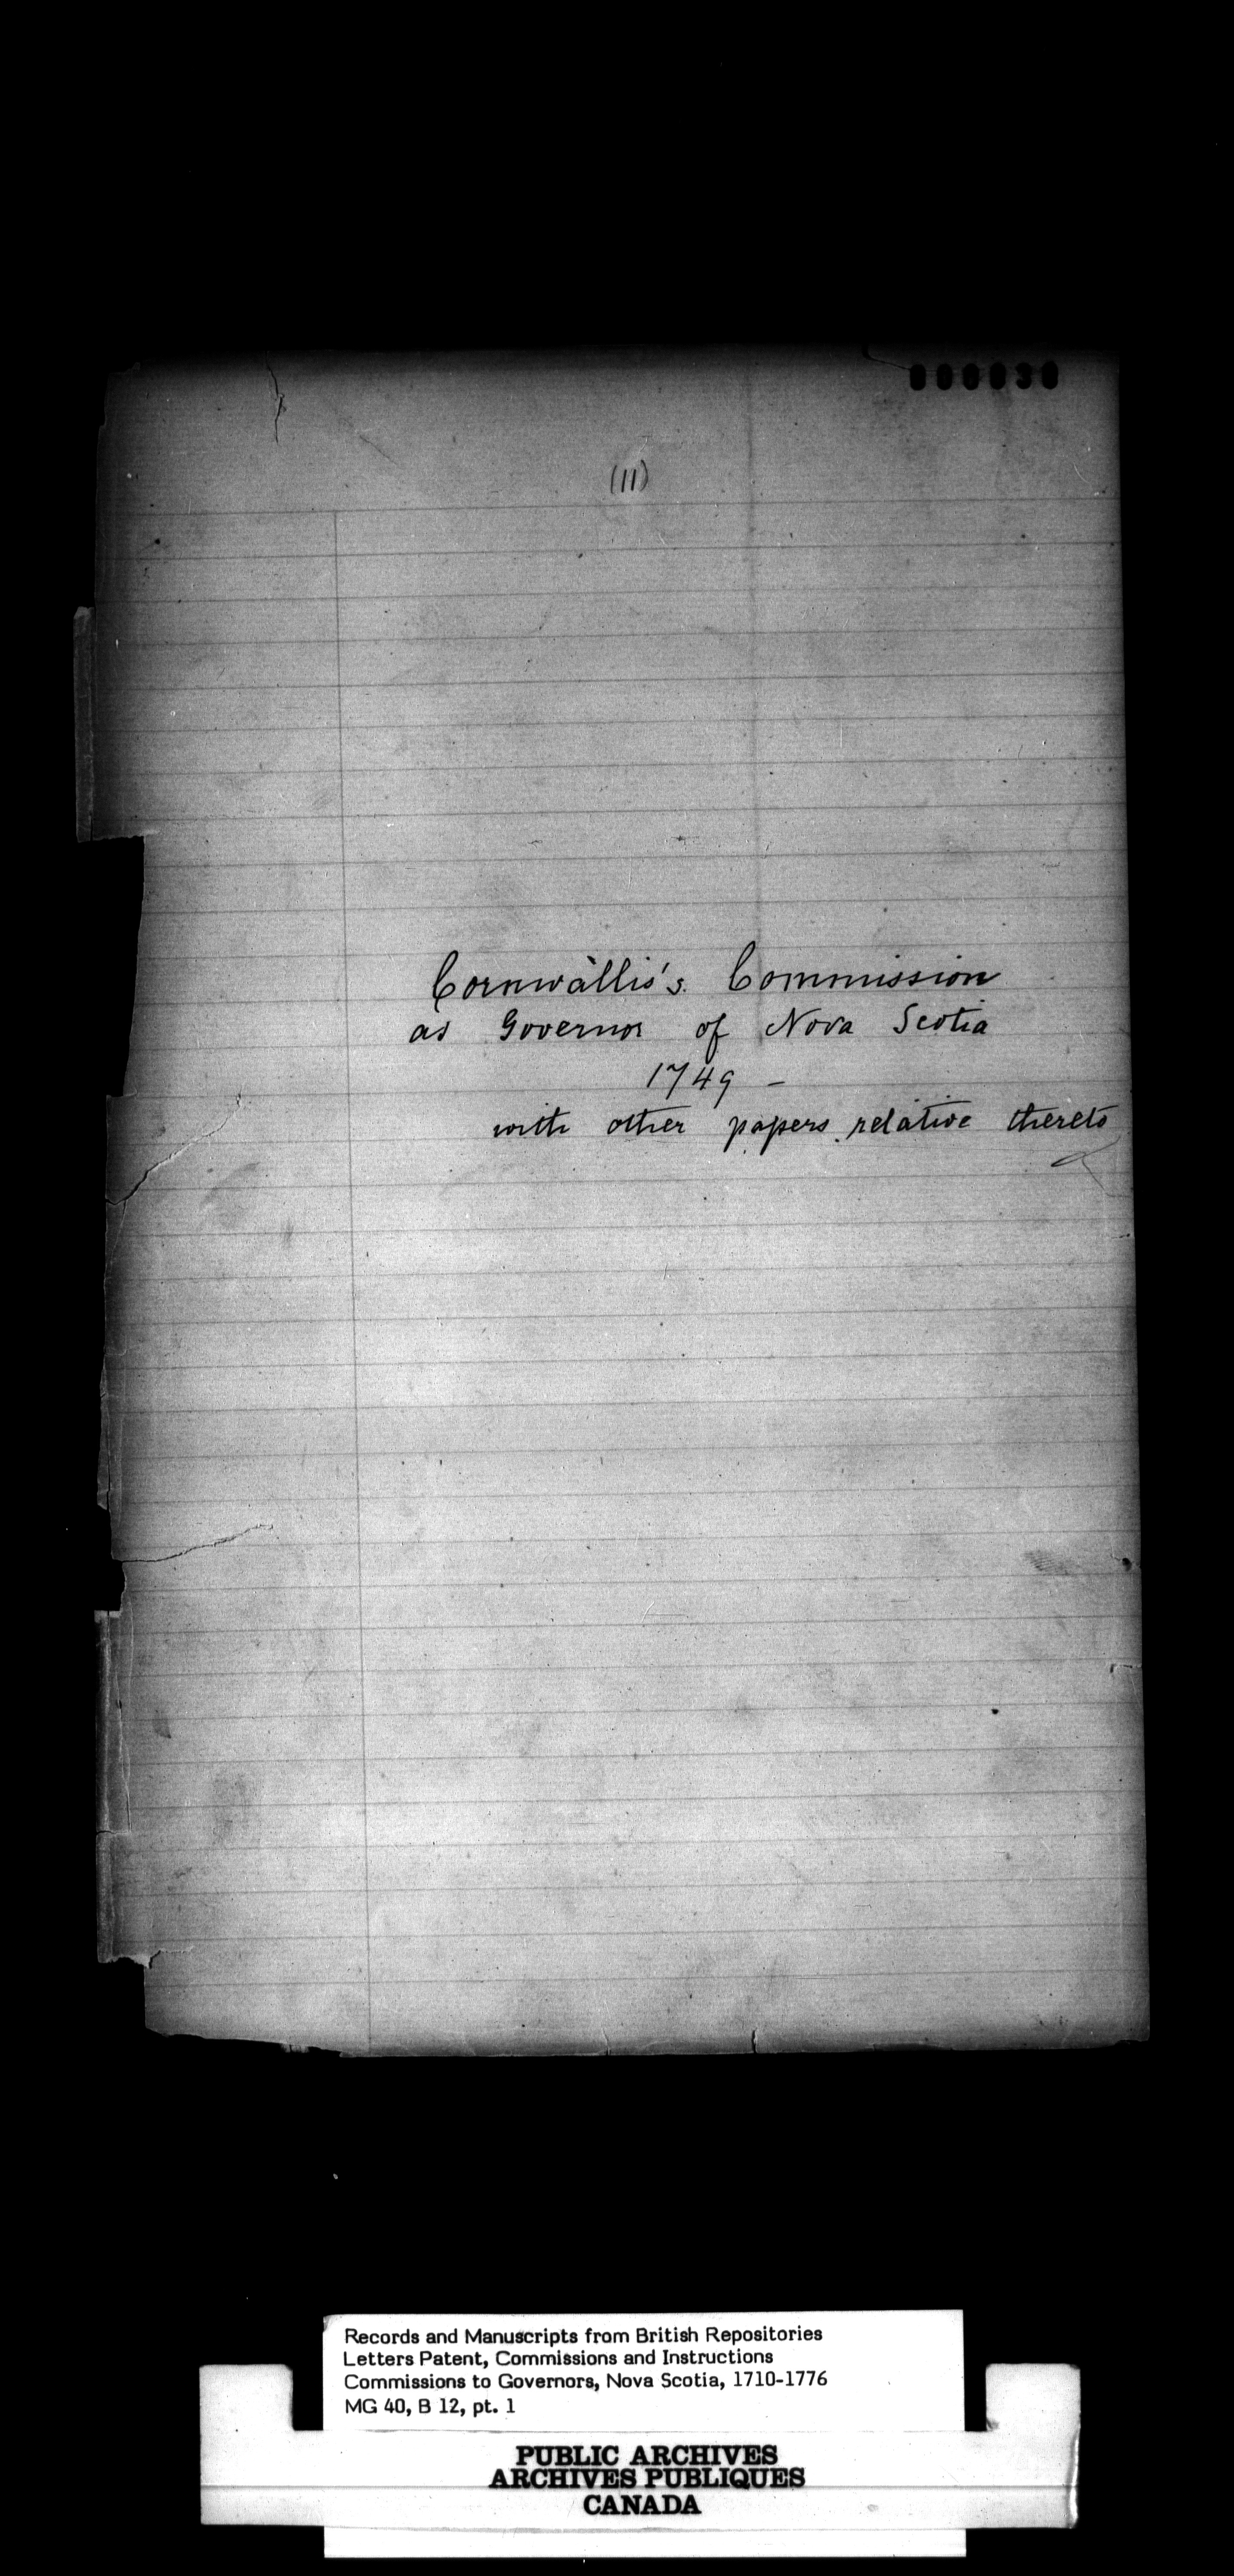 000030
(11)
Cornwallis's Commission
as Governor of Nova Scotia
1749 -
with other papers relative thereto
Records and Manuscripts from British Repositories
Letters Patent, Commissions and Instructions
Commissions to Governors, Nova Scotia, 1710-1776
MG 40, B 12, pt. 1
PUBLIC ARCHIVES
ARCHIVES PUBLIQUES
CANADA